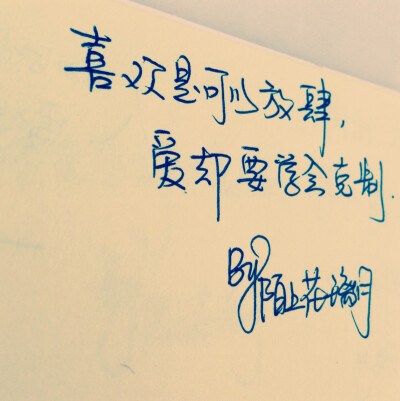 喜欢是可以放肆，
爱却要学会克制.
By陌上花璃月